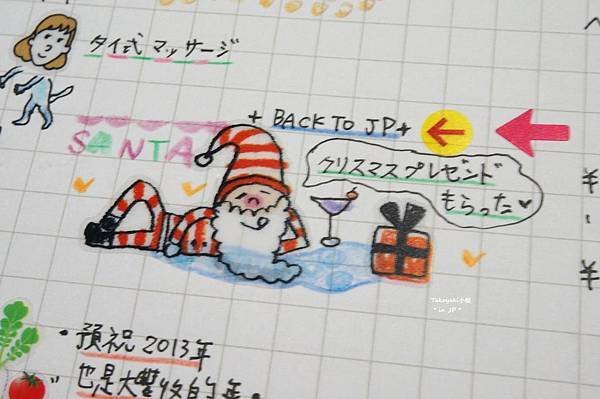 タイ式マッサージ
+ BACK TO JP +
SANTA
クリスマスプレゼンド
もらった♥
¥
¥
Takoyaki小姐
*in JP*
・預祝2013年
也是大豐收的年。